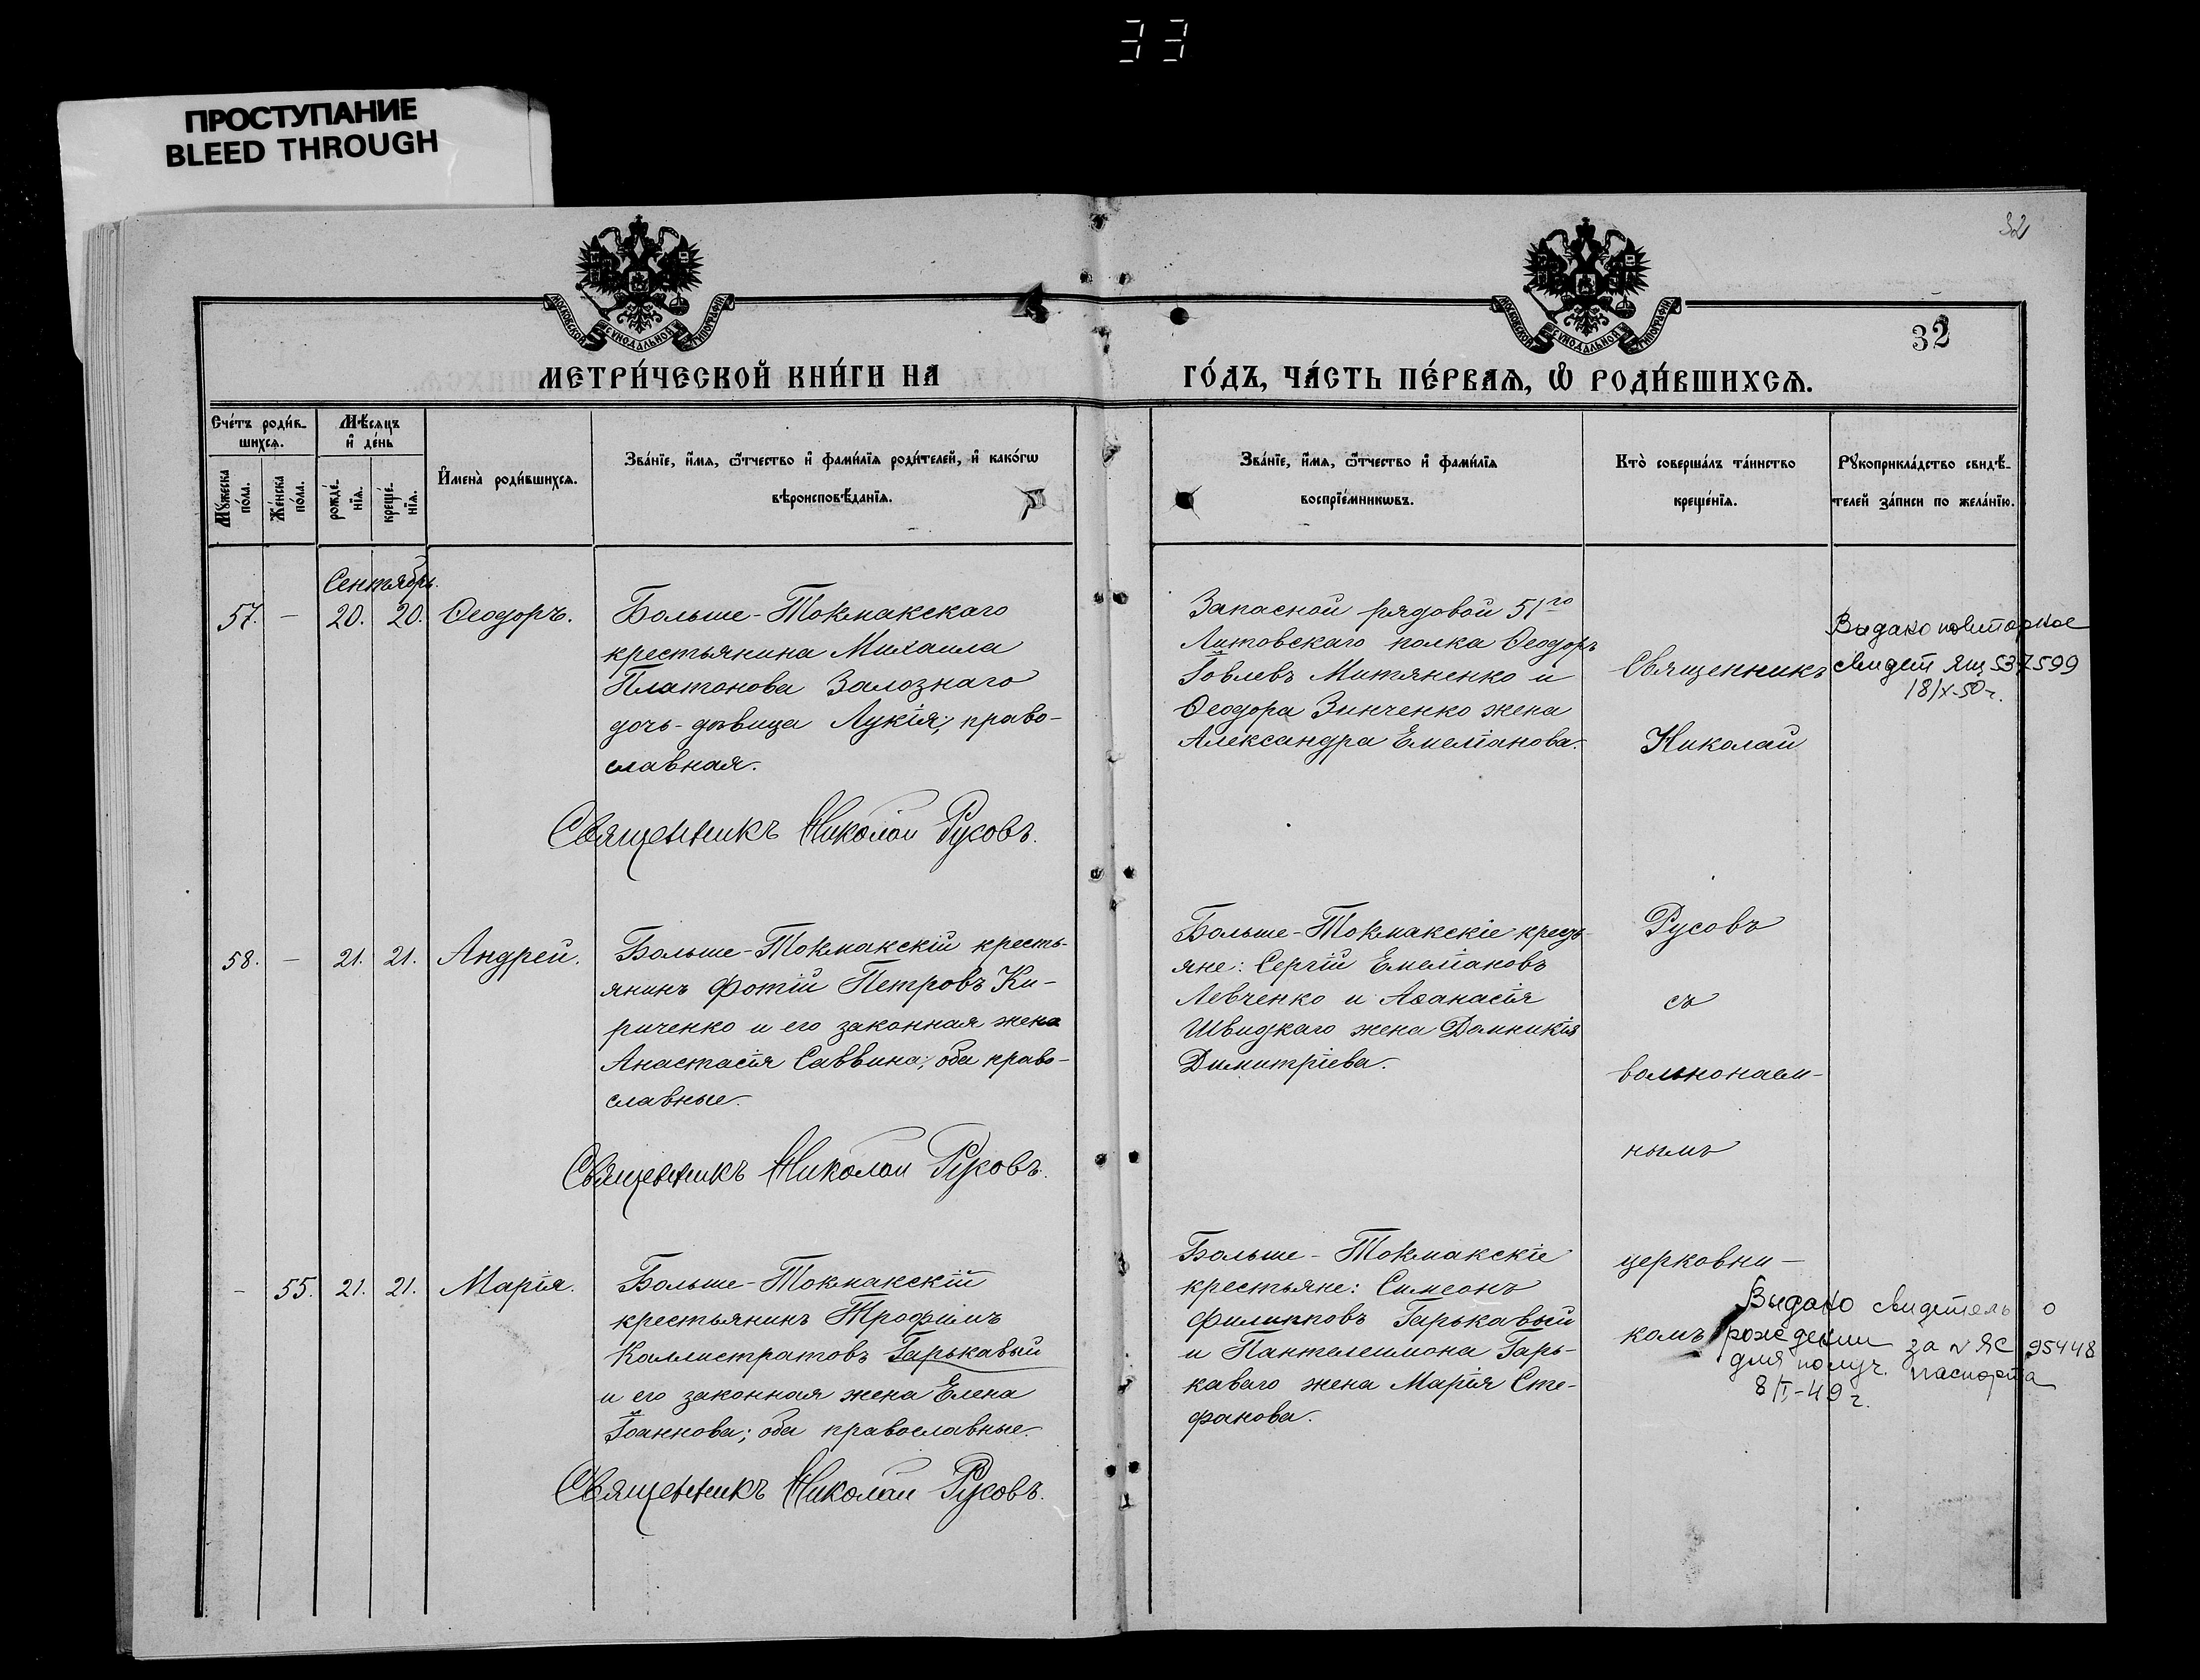 33
ПРОСТУПАНИЕ
BLEED THROUGH
32
МОСКОВСКОЙ СУНОДАЛЬНОЙ ТИПОГРАФІИ
МОСКОВСКОЙ СУНОДАЛЬНОЙ ТИПОГРАФІИ
32
МЕТРИ́ЧЕСКОЙ КНИ́ГИ НА
ГО́ДЪ, ЧА́СТЬ ПЕ́РВАѦ, Ѽ РОДИ́ВШИХСѦ.
Сче́тъ роди́в-
шихсѧ.
Мꙋ́жеска
по́ла.
Же́нска
по́ла.
Мѣ́сѧцъ
и҆ де́нь
рожде́-
нїѧ.
креще́-
нїѧ.
И҆мена̀ роди́вшихсѧ.
Зва́нїе, и҆́мѧ, ѻ҆́тчество и҆ фами́лїѧ роди́телей, и҆ како́гѡ
вѣроисповѣ́данїѧ.
Зва́нїе, и҆́мѧ, ѻ҆́тчество и҆ фами́лїѧ
воспрїе́мникѡвъ.
Кто̀ соверша́лъ та́инство
креще́нїѧ.
Рꙋкоприкла́дство свидѣ́-
телей за́писи по жела́нїю.
Сентябрь.
57. – 20. 20. Ѳеодоръ.
Больше-Токмакскаго
крестьянина Михаила
Платонова Залознаго
дочь-дѣвица Лукія; право-
славная.
Священникъ Николай Русовъ.
Запасной рядовой 51го
Литовскаго полка Ѳеодоръ
Іовлевъ Митяненко и
Ѳеодора Зинченко жена
Александра Емеліанова.
Выдано повторное
свидет ЯЩ 537599
18/X-50 г.
58. – 21. 21. Андрей.
Больше-Токмакскій кресть-
янинъ Фотій Петровъ Ки-
риченко и его законная жена
Анастасія Саввина; оба право-
славные.
Священникъ Николай Русовъ.
Больше-Токмакскіе кресть-
яне: Сергій Емеліановъ
Левченко и Аѳанасія
Швидкаго жена Домникія
Димитріева.
– 55. 21. 21. Марія.
Больше-Токмакскій
крестьянинъ Трофимъ
Каллистратовъ Гарькавый
и его законная жена Елена
Іоаннова; оба православные.
Священникъ Николай Русовъ.
Больше-Токмакскіе
крестьяне: Симеонъ
Филипповъ Гарькавый
и Пантелеимона Гарь-
каваго жена Марія Сте-
фанова.
Священникъ
Николай
Русовъ
съ
вольнонаем-
нымъ
церковни-
комъ
Выдано свидетель о
рождении за N ЯС 95448
для получ. паспорта
8/I-49 г.